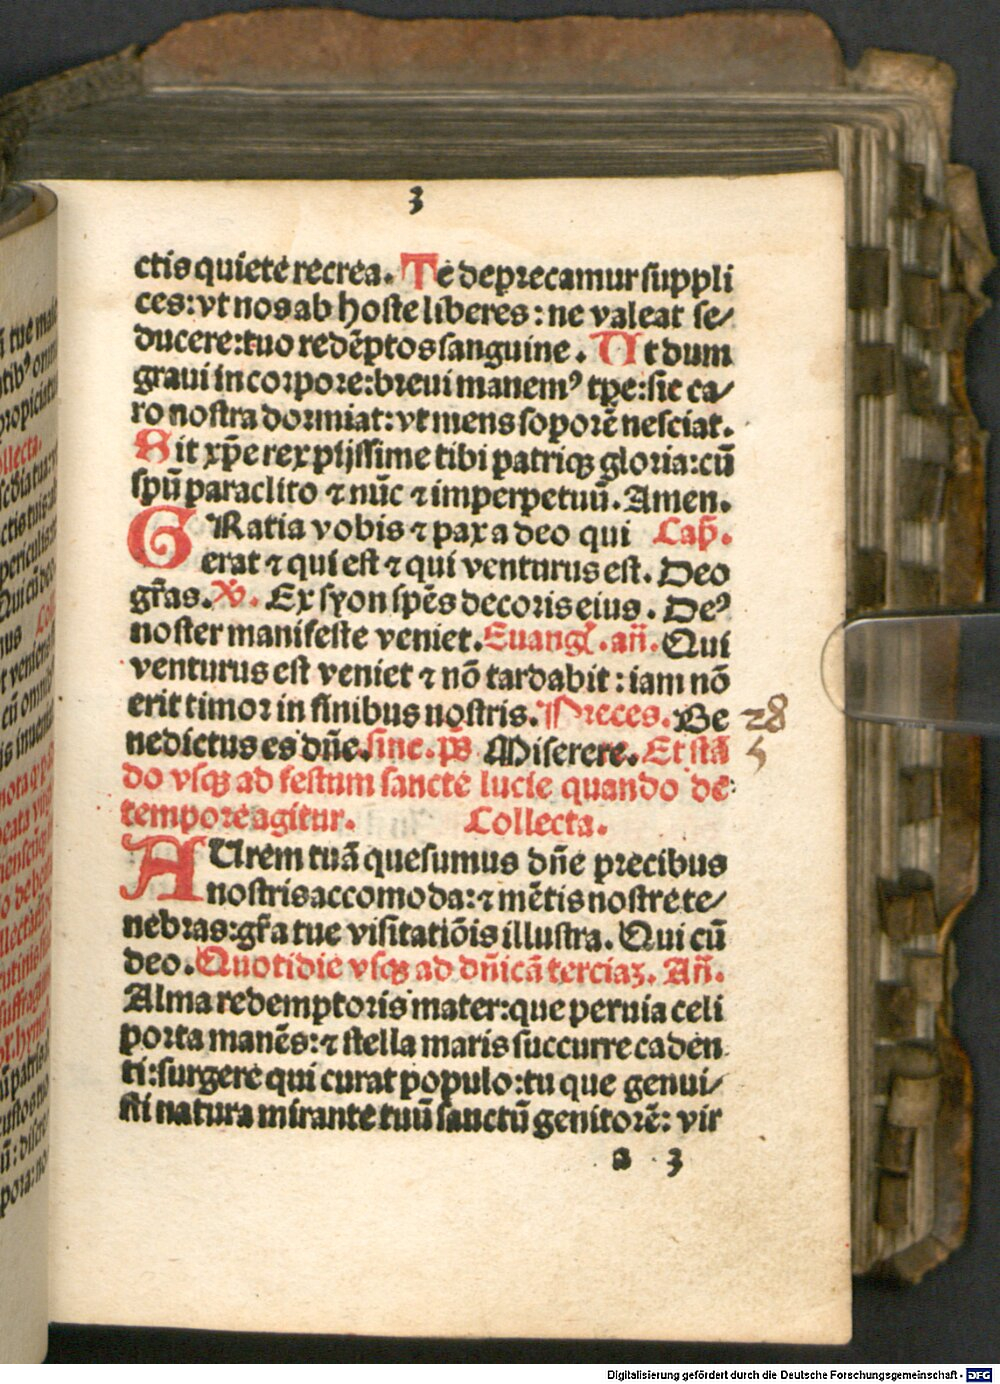 3
ctis quiete recrea. Te deprecamur suppli
ces: vt nos ab hoste liberes: ne valeat se/
ducere: tuo redēptos sanguine. Ut dum
graui in corpore: breui manemꝰ tp̄e: sic ca/
ro nostra dormiat: vt mens soporē nesciat.
Sit xp̄e rex pijssime tibi patriqꝫ gloria: cū
spū paraclito ⁊ nūc ⁊ imperpetuū. Amen.
GRatia vobis ⁊ pax a deo qui Cap̄.
erat ⁊ qui est ⁊ qui venturus est. Deo
gr̄as. V̄. Ex syon spēs decoris eius. Deꝰ
noster manifeste veniet. Euangl̄. an̄. Qui
venturus est veniet ⁊ nō tardabit: iam nō
erit timor in finibus nostris. Preces. Be 28
nedictus es dn̄e. sine. ps̄ Miserere. Et stā 5
do vsqꝫ ad festum sancte lucie quando de
tempore agitur. Collecta.
AUrem tuā quesumus dn̄e precibus
nostris accomoda: ⁊ mētis nostre te/
nebras: gr̄a tue visitatiōis illustra. Qui cū
deo. Quotidie vsqꝫ ad dn̄icā terciaꝫ. An̄.
Alma redemptoris mater: que peruia celi
porta manēs: ⁊ stella maris succurre caden
ti: surgere qui curat populo: tu que genui/
sti natura mirante tuū sanctū genitorē: vir
a 3
Digitalisierung gefördert durch die Deutsche Forschungsgemeinschaft - DFG